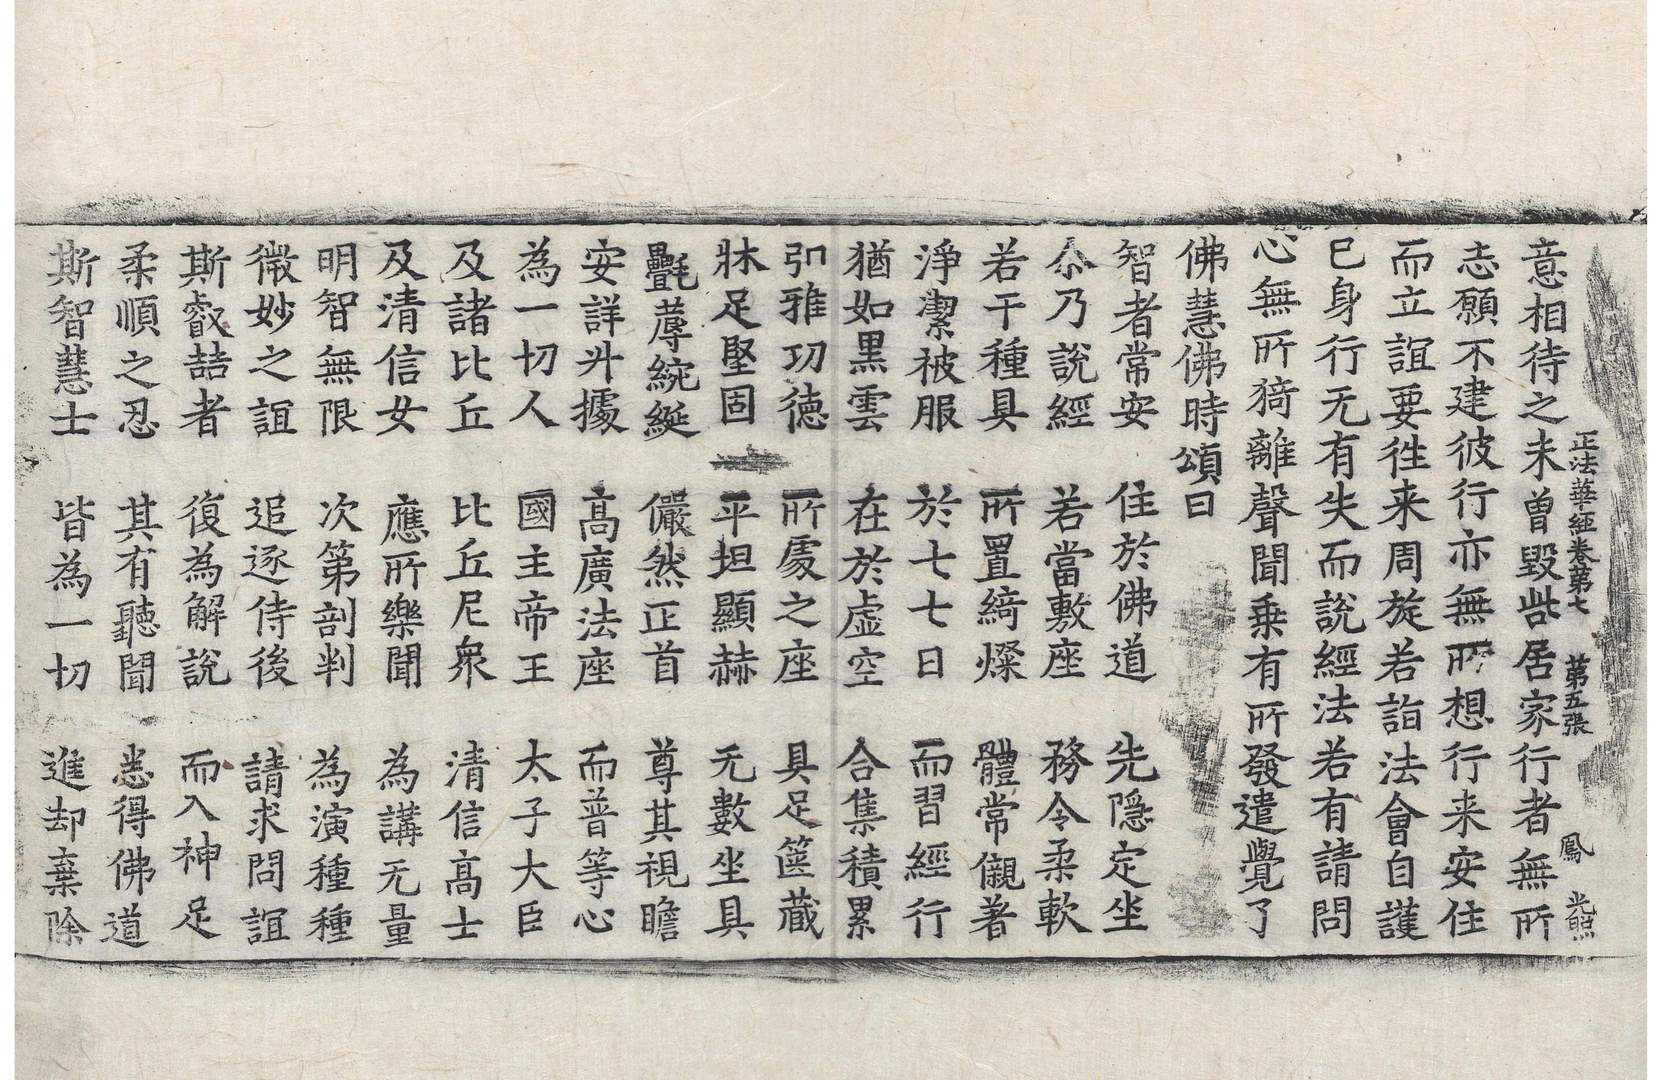 正法華經卷第七 第五張 鳳 光照
意相待之未曾毀呰居家行者無所
志願不建彼行亦無所想行来安住
而立誼要徃来周旋若詣法會自護
已身行无有失而說經法若有請問
心無所猗離聲聞乗有所發遣覺了
佛慧佛時頌曰
智者常安 住於佛道 先隐定坐
尒乃說經 若當敷座 務令柔軟
若干種具 所置綺燦 體常儭著
淨潔被服 於七七日 而習經行
猶如黒雲 在於虚空 合集積累
引雅功徳 所處之座 具足箧藏
牀足堅固 平坦顯赫 无數坐具
氎蓐綩綖 儼然正首 尊其視瞻
安詳升據 高廣法座 而普等心
為一切人 國主帝王 太子大臣
及諸比丘 比丘尼衆 清信高士
及清信女 應所樂聞 為講无量
明智無限 次第剖判 為演種種
微妙之誼 追逐侍後 請求問誼
斯叡喆者 復為解說 而入神足
柔順之忍 其有聽聞 悉得佛道
斯智慧士 皆為一切 進却棄除